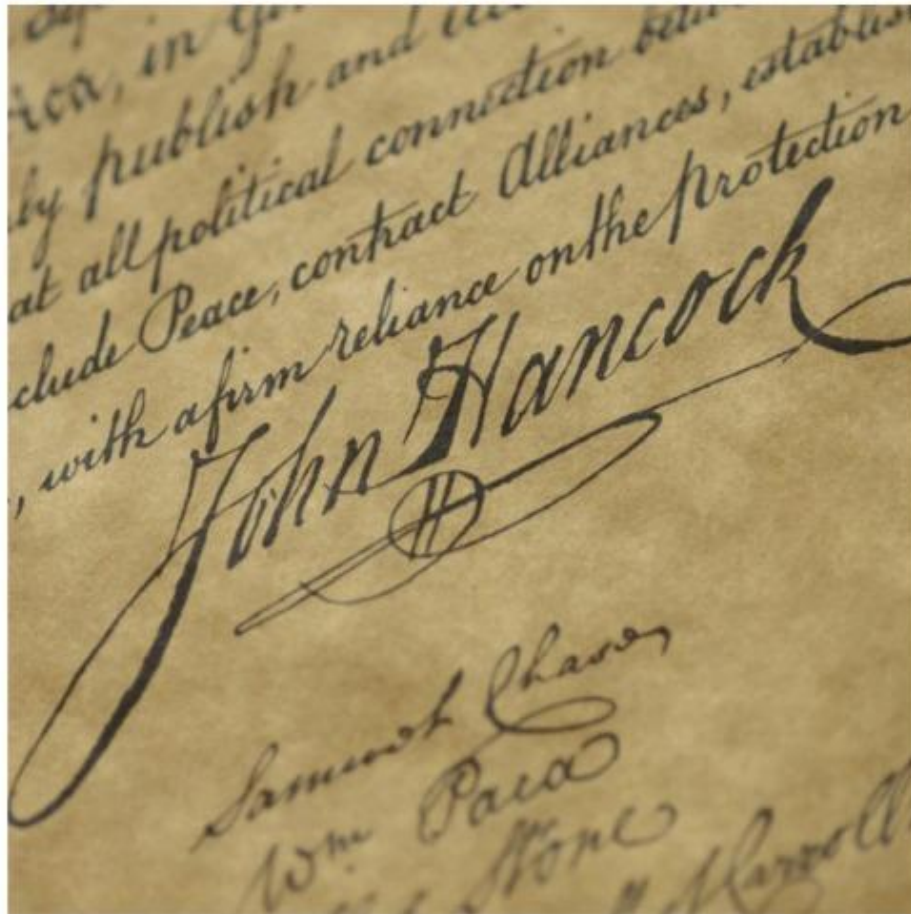 ica, in
by publish and
at all political connection
clude Peace, contract Alliances, establis
, with a firm reliance on the protection
John Hancock
Samuel Chase
Wm Paca
Stone
Carroll